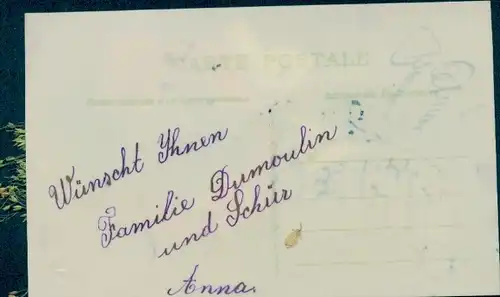 CARTE POSTALE
Wünscht Ihnen
Familie Dumoulin
und Schür
Anna.